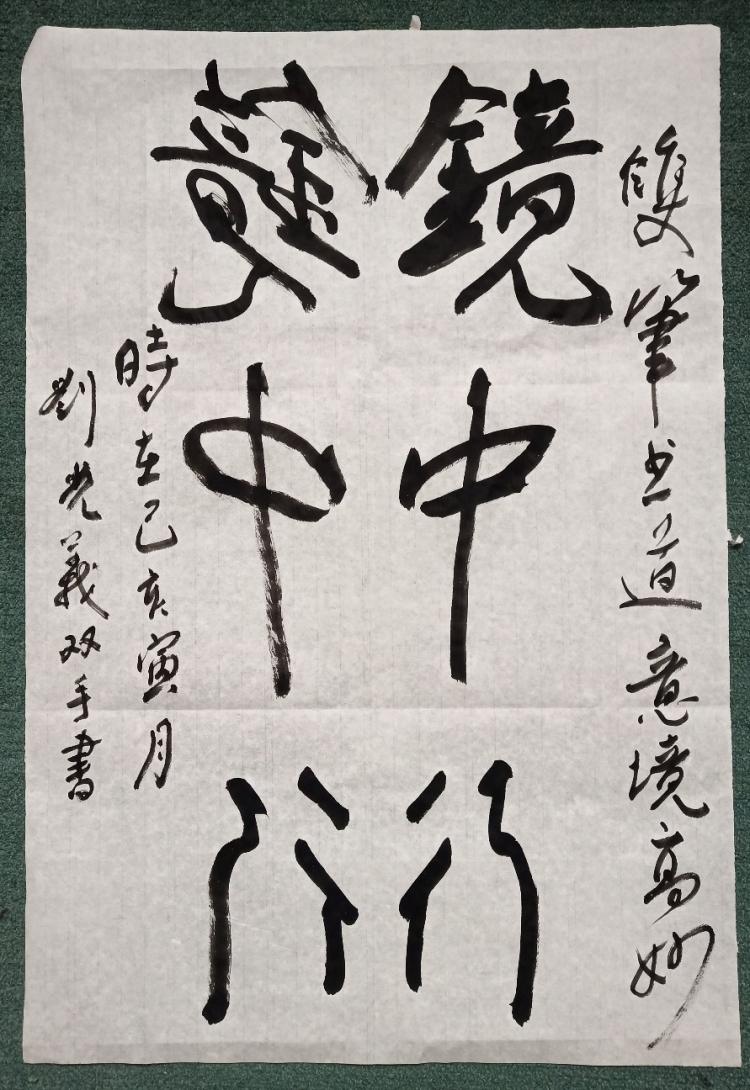 雙筆书道意境高妙
鏡中行
鏡中行
時在己亥寅月
劉光義双手書